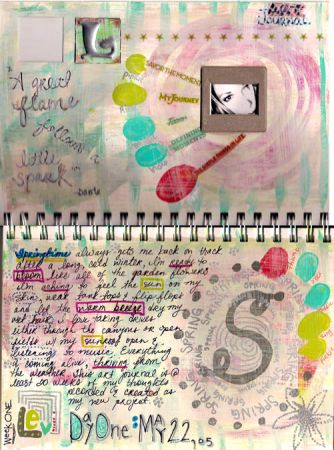 Art Journal
L
SAVOR THE MOMENT
MY JOURNEY
DEFINING MOMENTS
THE SIMPLE THINGS IN LIFE
"A great
flame
follows a
little
spark"
Dante
Springtime always gets me back on track
after a long, cold winter. I'm ready to
bloom like all of the garden flowers
I'm aching to feel the sun on my
skin, wear tank tops & flip flops
and let the warm breeze dry my
wet hair. I love taking drives
either through the canyons or open
fields w/ my sunroof open &
listening to music. Everything
is coming alive, thriving from
the weather. This art journal is @
least 20 weeks of my thoughts
recorded & created as
my new project.
S
SPRING
SPRING
SPRING
SPRING
Week ONE
Lev
Day One: MAY 22, 05